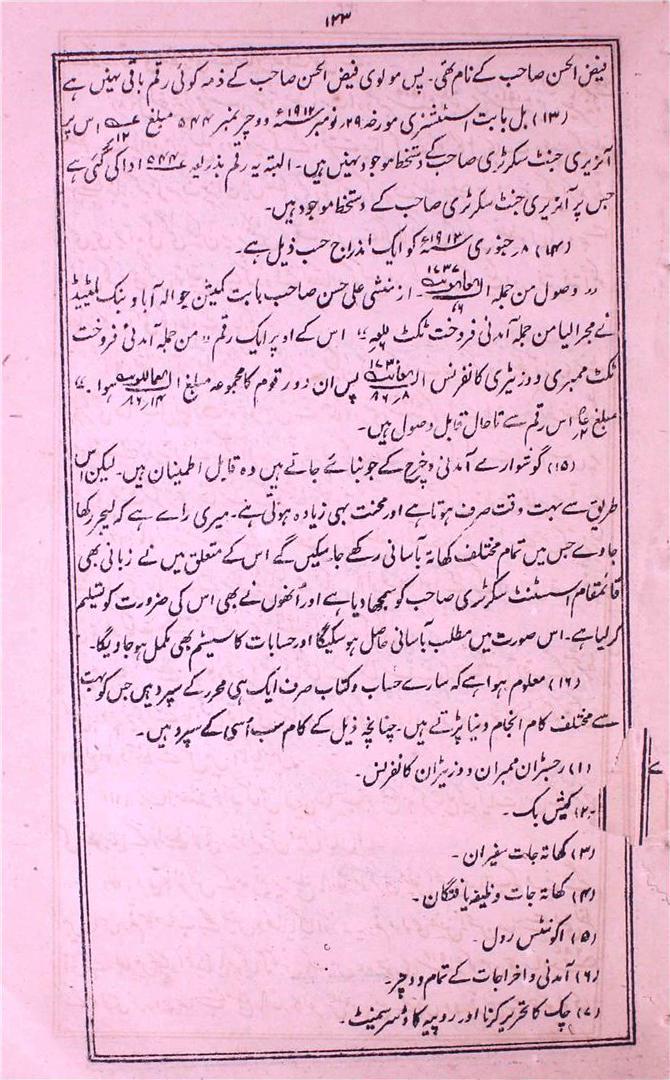 ۱۲۳
فیض الحسن صاحب کے نام تھی۔ پس مولوی فیض الحسن صاحب کے ذمہ کوئی رقم باقی نہیں ہے
(۱۳) بل بابت اسٹیشنری مورخہ ۲۹؍ نومبر ۱۹۱۲ء ووچر نمبر ۵۴۴ مبلغ اس پر
آنریری جنٹ سکرٹری صاحب کے دستخط موجود نہیں ہیں۔ البتہ یہ رقم بذریعہ ادا کی گئی ہے
جس پر آنریری جنٹ سکرٹری صاحب کے دستخط موجود ہیں۔
(۱۴) ۸؍ جنوری ۱۹۱۳ء کو ایک اندراج حسب ذیل ہے۔
" وصول من جملہ ۱۷۳۷ از منشی علی حسن صاحب بابت کمیشن جو الہ آباد بنک لمیٹیڈ
نے مجرا لیا من جملہ آمدنی فروخت ٹکٹ " اس کے اوپر ایک رقم " من جملہ آمدنی فروخت
ٹکٹ ممبری و وزیٹری کانفرنس پس ان دو رقوم کا مجموعہ مبلغ ہوا۔"
مبلغ اس رقم سے تاحال قابل وصول ہیں۔
(۱۵) گوشوارے آمدنی و خرچ کے جو بنائے جاتے ہیں وہ قابل اطمینان ہیں۔ لیکن اس
طریق سے بہت وقت صرف ہوتا ہے اور محنت بھی زیادہ ہوتی ہے۔ میری راے ہے کہ لیجر رکھا
جاوے جس میں تمام مختلف کھاتہ بآسانی رکھے جا سکیں گے اس کے متعلق میں نے زبانی بھی
قائمقام اسسٹنٹ سکرٹری صاحب کو سمجھا دیا ہے اور اُنھوں نے بھی اس کی ضرورت کو تسلیم
کر لیا ہے۔ اس صورت میں مطلب بآسانی حاصل ہو سکیگا اور حسابات کا سسٹم بھی مکمل ہو جاویگا۔
(۱۶) معلوم ہوا ہے کہ سارے حساب و کتاب صرف ایک ہی محرر کے سپرد ہیں جس کو بہت
سے مختلف کام انجام دینا پڑتے ہیں۔ چنانچہ ذیل کے کام سب اُسی کے سپرد ہیں۔
(۱) رجسٹران ممبران و وزیٹران کانفرنس۔
(۲) کیش بک۔
(۳) کھاتہ جات سفیران۔
(۴) کھاتہ جات وظیفہ یافتگان۔
(۵) اکونٹس رول۔
(۶) آمدنی و اخراجات کے تمام ووچر۔
(۷) چک کا تحریر کرنا اور روپیہ کا ڈسبرسمینٹ۔